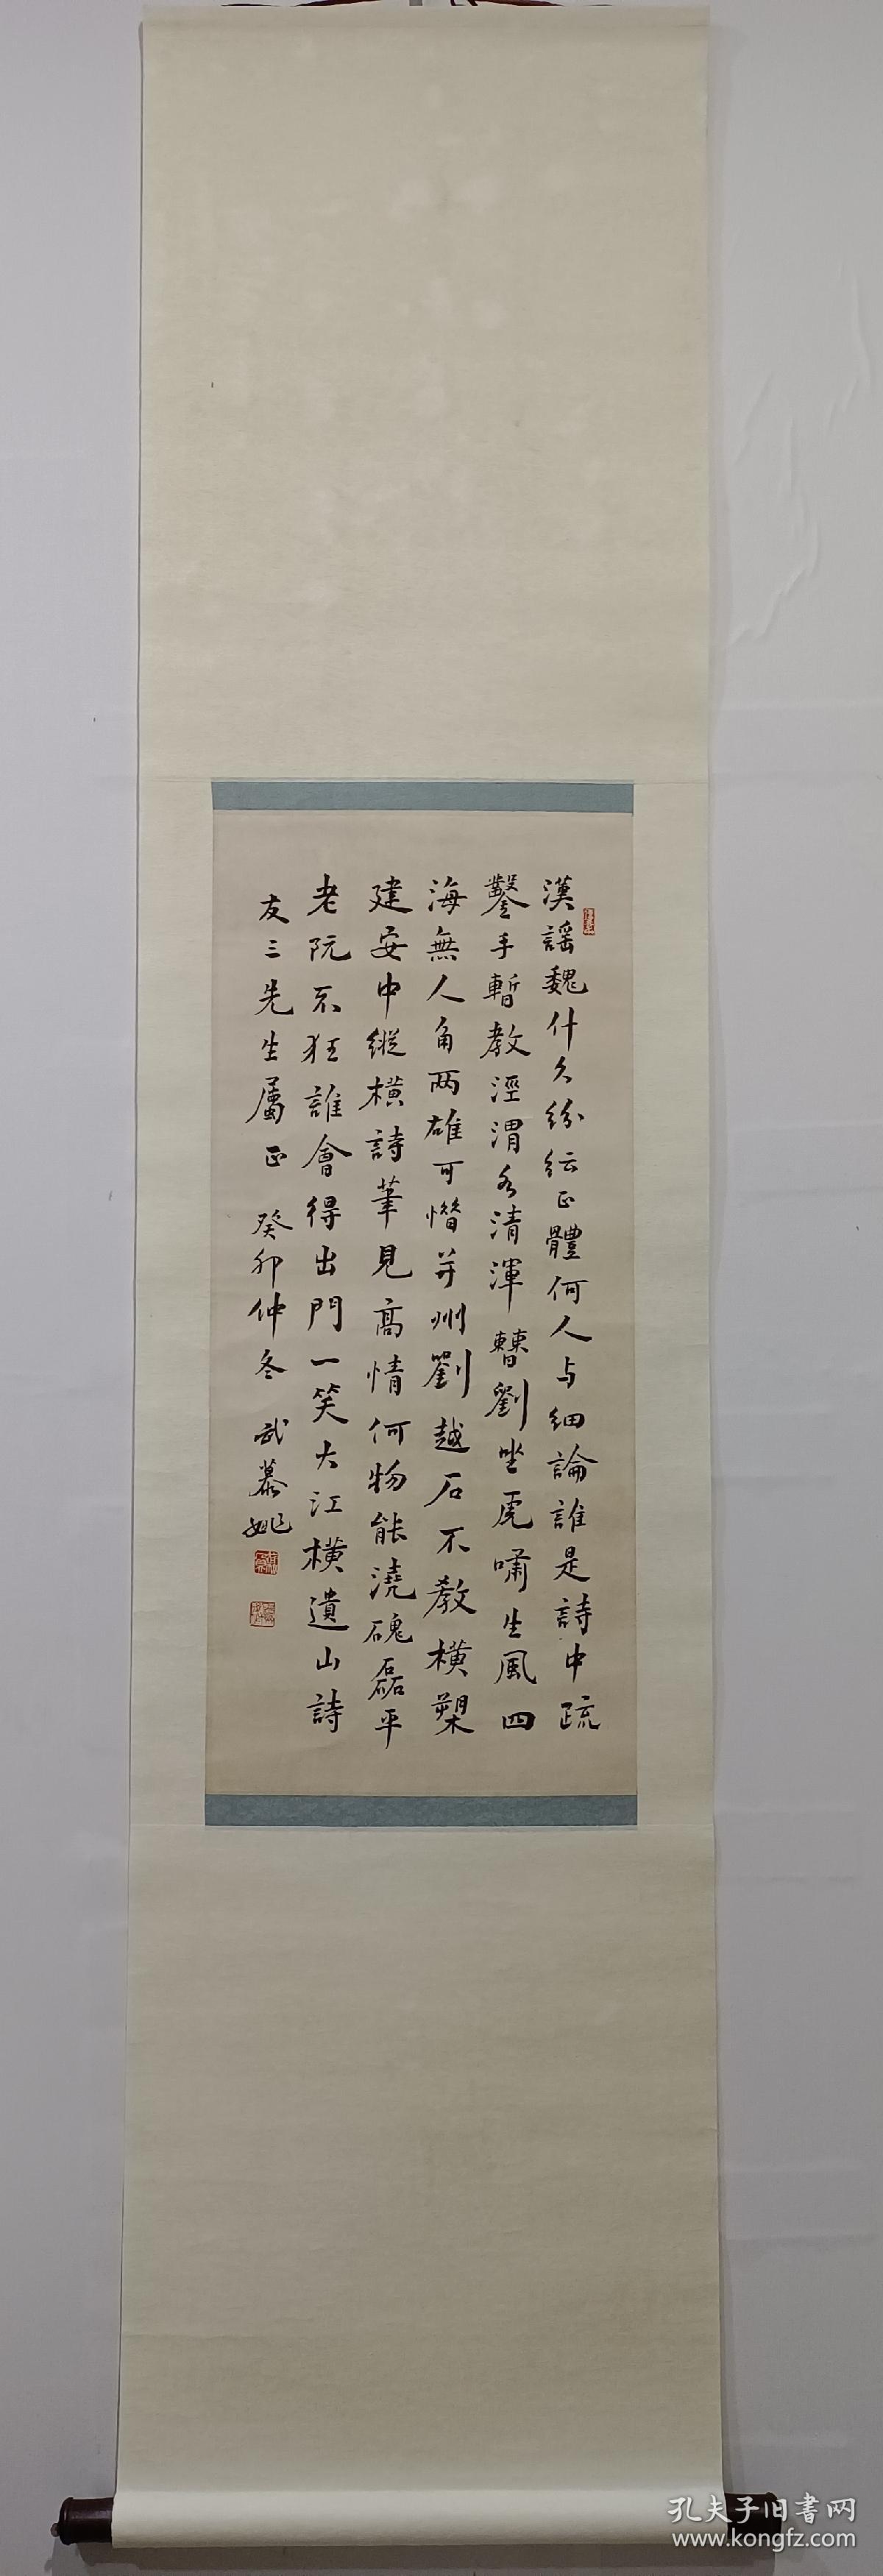 漢謠魏什久紛紜正體何人与細論誰是詩中疏
鑿手暫教涇渭各清渾曹劉坐虎嘯生風四
海無人角兩雄可惜并州劉越石不教橫槊
建安中縱橫詩筆見高情何物能澆磈磊平
老阮不狂誰會得出門一笑大江橫遺山詩
友三先生屬正 癸卯仲冬 武慕姚
孔夫子旧書网
www.kongfz.com